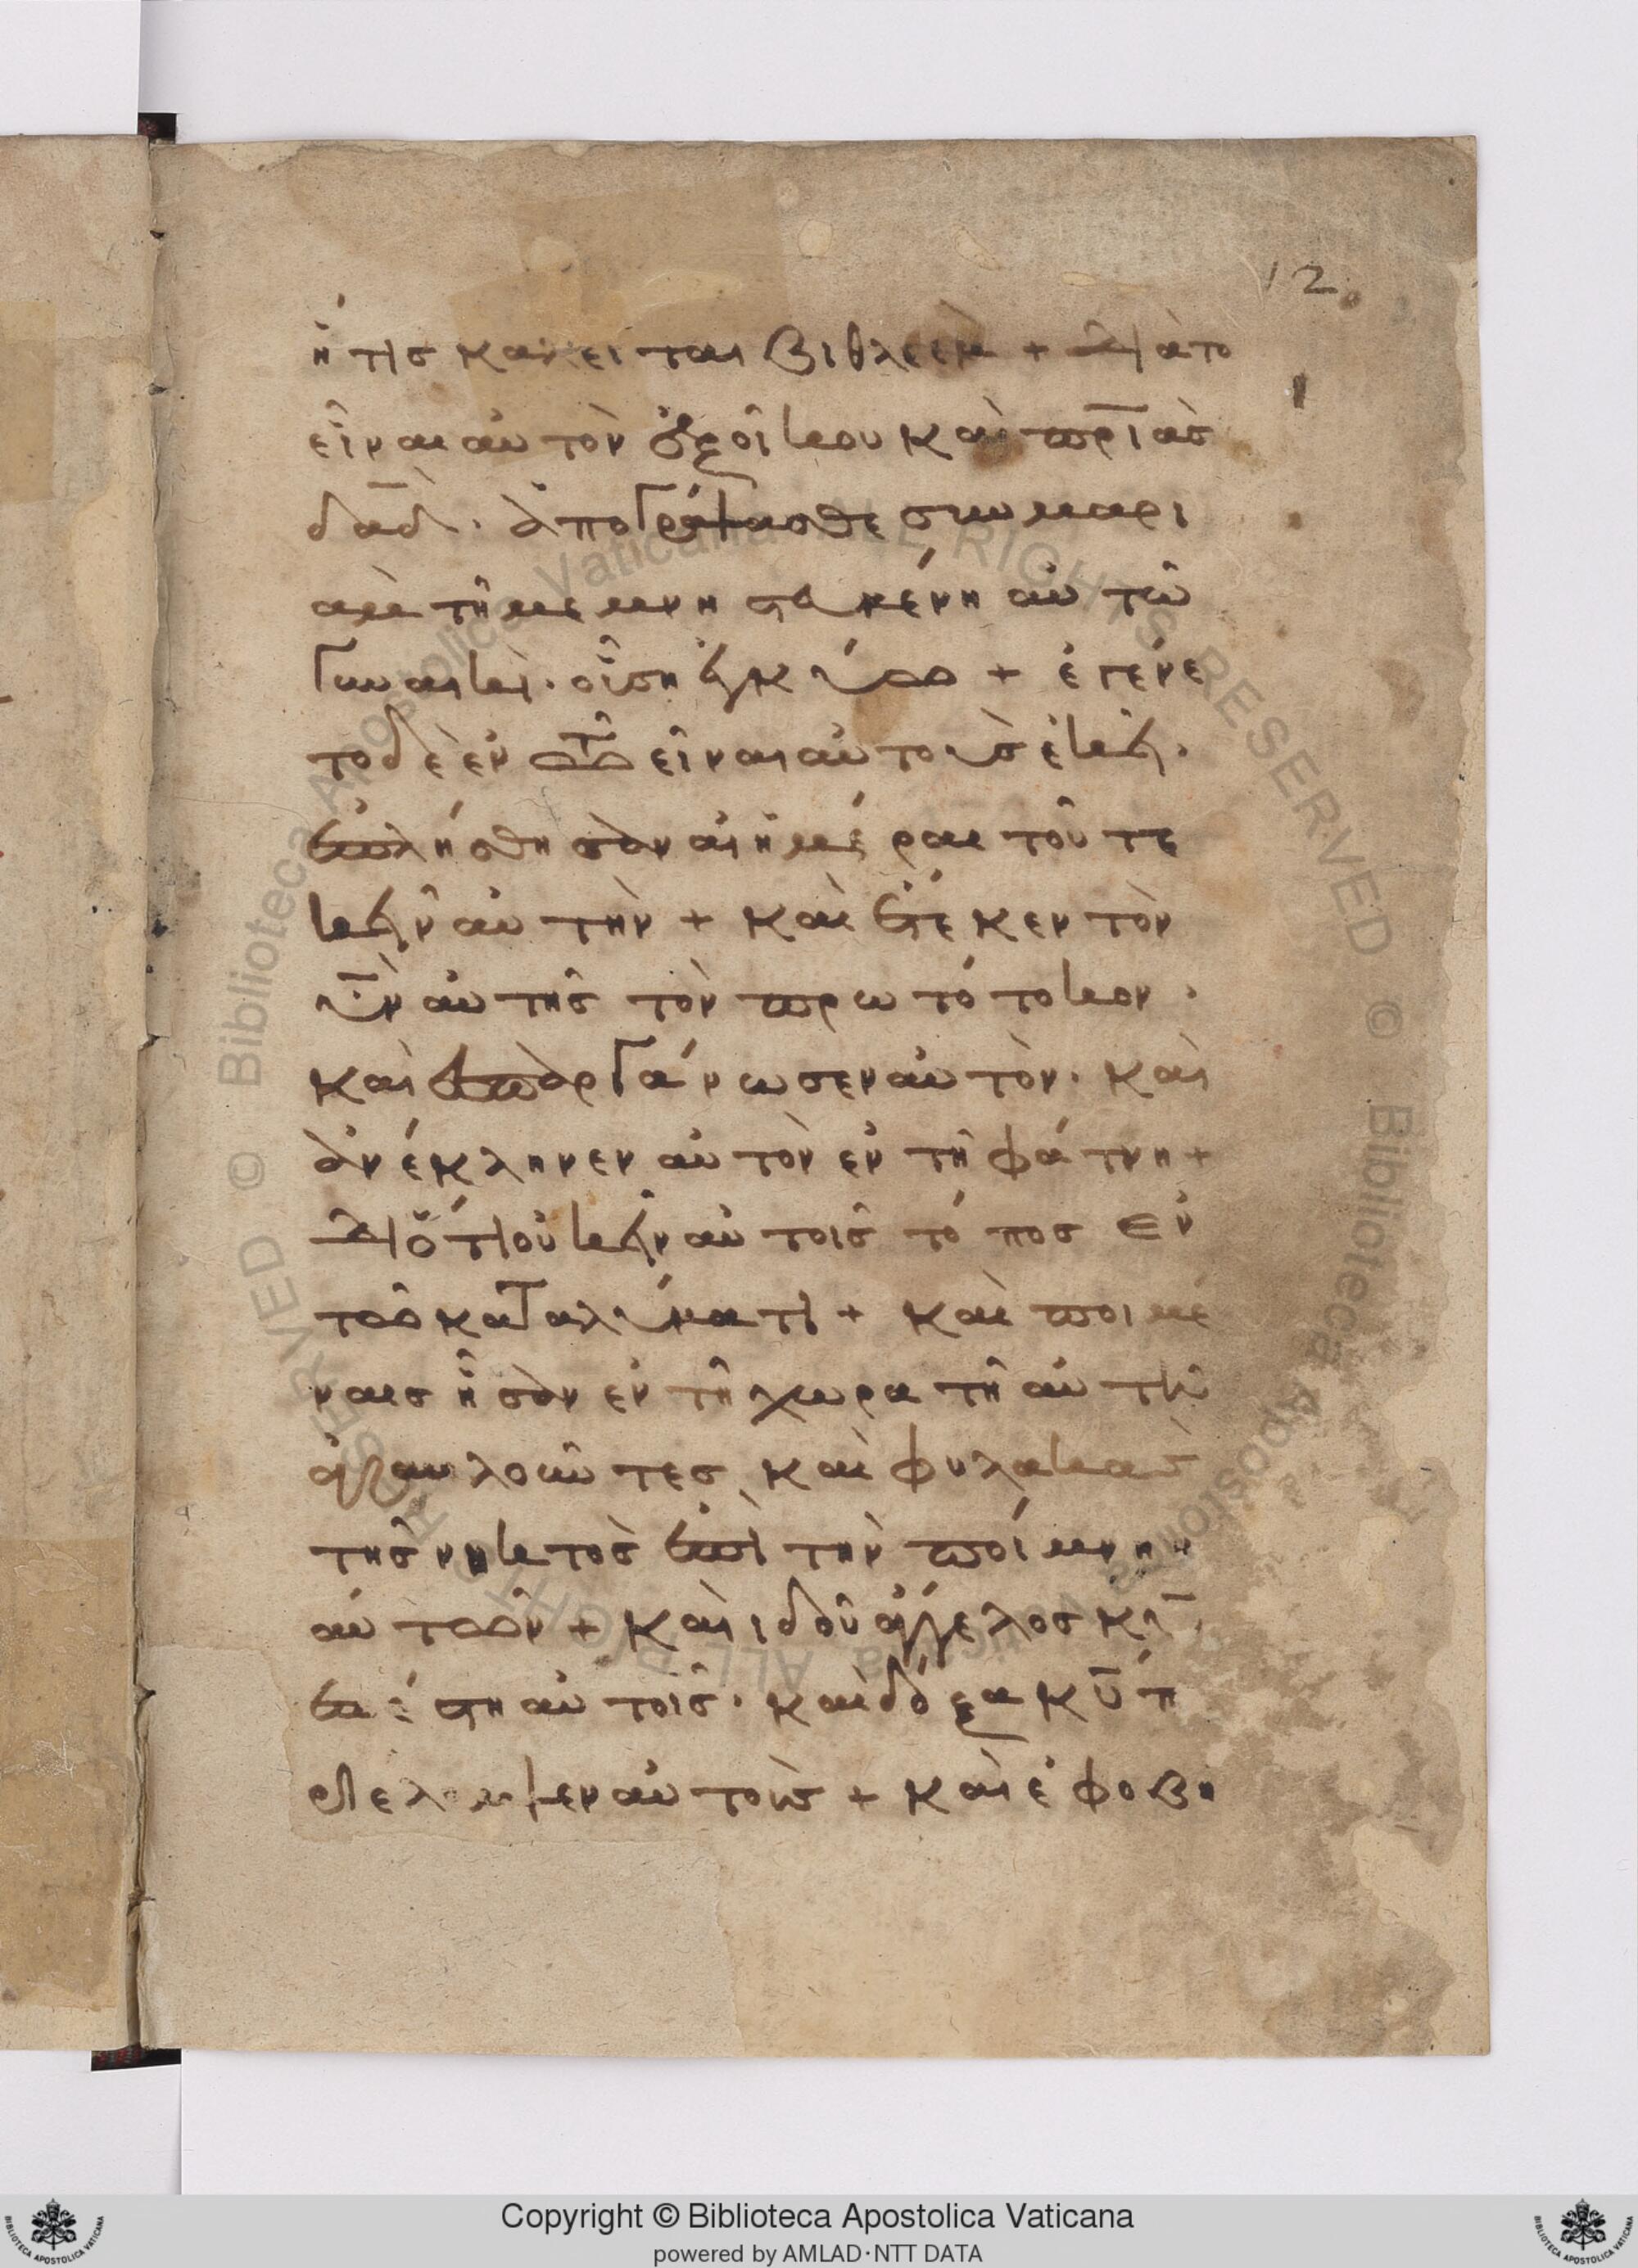 12
ἥτις καλεῖται βιθλεὲμ + διὰ το
εἶναι αὐτὸν ἐξ οἴκου καὶ πρ̅ιᾶς
δα̅δ · ἀπογράψασθε συν μαρι
ὰμ τῆ μεμνηστευμένη αὐτῶ
γυναικὶ · οὔση ἐγκύω + ἐγένε
το δὲ ἐν τῶ εἶναι αὐτοὺς ἐκεῖ ·
ἐπλήσθησαν αἱ ἡμέραι τοῦ τε
κεῖν αὐτὴν + καὶ ἔτεκεν τὸν
υ̅ν αὐτῆς τὸν πρωτότοκον ·
καὶ ἐσπαργάνωσεν αὐτὸν · καὶ
ἀνέκληνεν αὐτὸν ἐν τῆ φάτνη +
διότι οὐκ ἦν αὐτοῖς τόπος ἐν
τῶ καταλύματι + καὶ ποιμέ
ναις ἦσαν ἐν τῆ χωρα τῆ αὐτῆ
ἀγραυλοῦντες καὶ φυλακας
τῆς νηκτὸς ἐπὶ τὴν ποίμνην
αὐτῶν + καὶ ἰδοῦ ἄγγελος κ̅υ
ἐπέστη αὐτοῖς · καὶ δόξα κ̅υ π
εριέλαμψεν αὐτοὺς + καὶ ἐφοβη
Copyright © Biblioteca Apostolica Vaticana
powered by AMLAD·NTT DATA